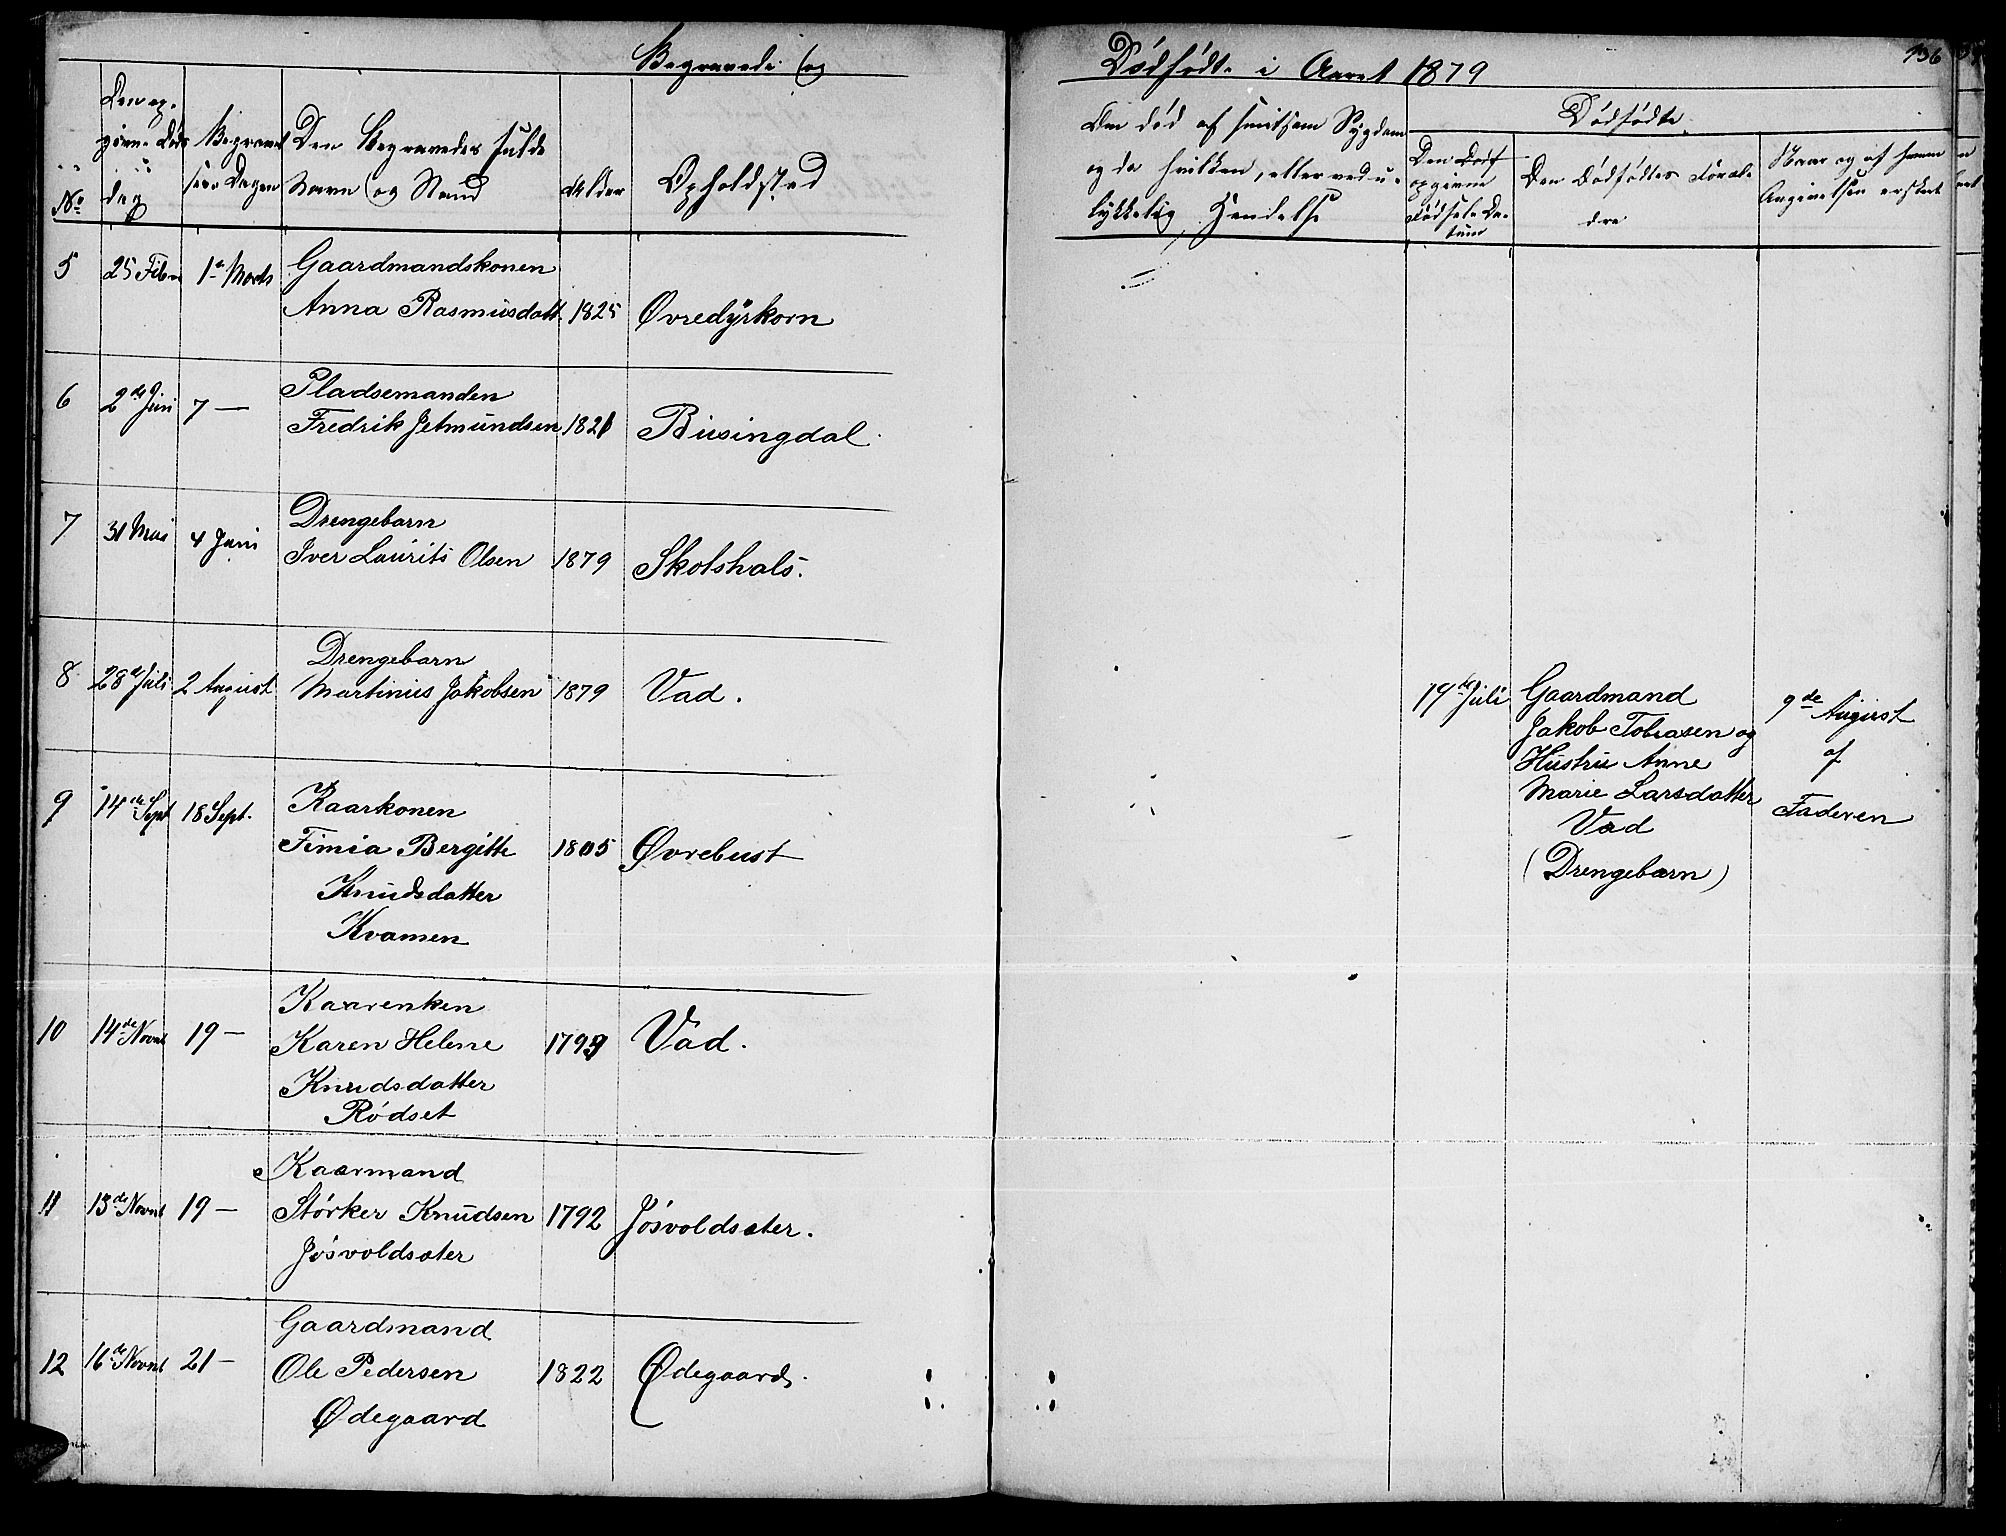 Begravede og
Dødfødte i Aaret 1879
136
No
Den op-
givne Døds
dag
Begravel
sses Dagen
Den Begravedes fulde
Navn og Stand
Alder
Opholdssted
Om død af smitsom Sygdom
og da hvilken, eller ved u-
lykkelig Hendelse
Dødfødte.
Den
opgivne
Fødsels Da-
tum
Den Dødfødtes Foræl-
dre
Naar og af hvem
Angivelsen er skeet
5 25 Febr 1te Marts Gaardmandskonen
Anna Rasmusdatt. 1825 Øvredyrkorn
6 2de Juni 7 — Pladsemanden
Fredrik Jetmundsen 1821 Busingdal.
7 31 Mai 4 Juni Drengebarn
Iver Laurits Olsen 1879 Skotshals.
8 28de Juli 2 August Drengebarn
Martinus Jakobsen 1879 Vad.
19de Juli Gaardmand
Jakob Tobiasen og
Hustru Anne
Marie Larsdatter
Vad
(Drengebarn)
9de August
af
Faderen
9 14de Sept 18 Sept. Kaarkonen
Fimia Bergitte 1805 Øvrebust
Knudsdatter
Kvamen
10 14de Novbr 19 — Kaarenken
Karen Helene 1799 Vad.
Knudsdatter
Rødset
11 13de Novbr 19 — Kaarmand
Størker Knudsen 1792 Jøsvoldsæter.
Jøsvoldsæter
12 16de Novbr 21 — Gaardmand
Ole Pedersen 1822 Ødegaard.
Ødegaard